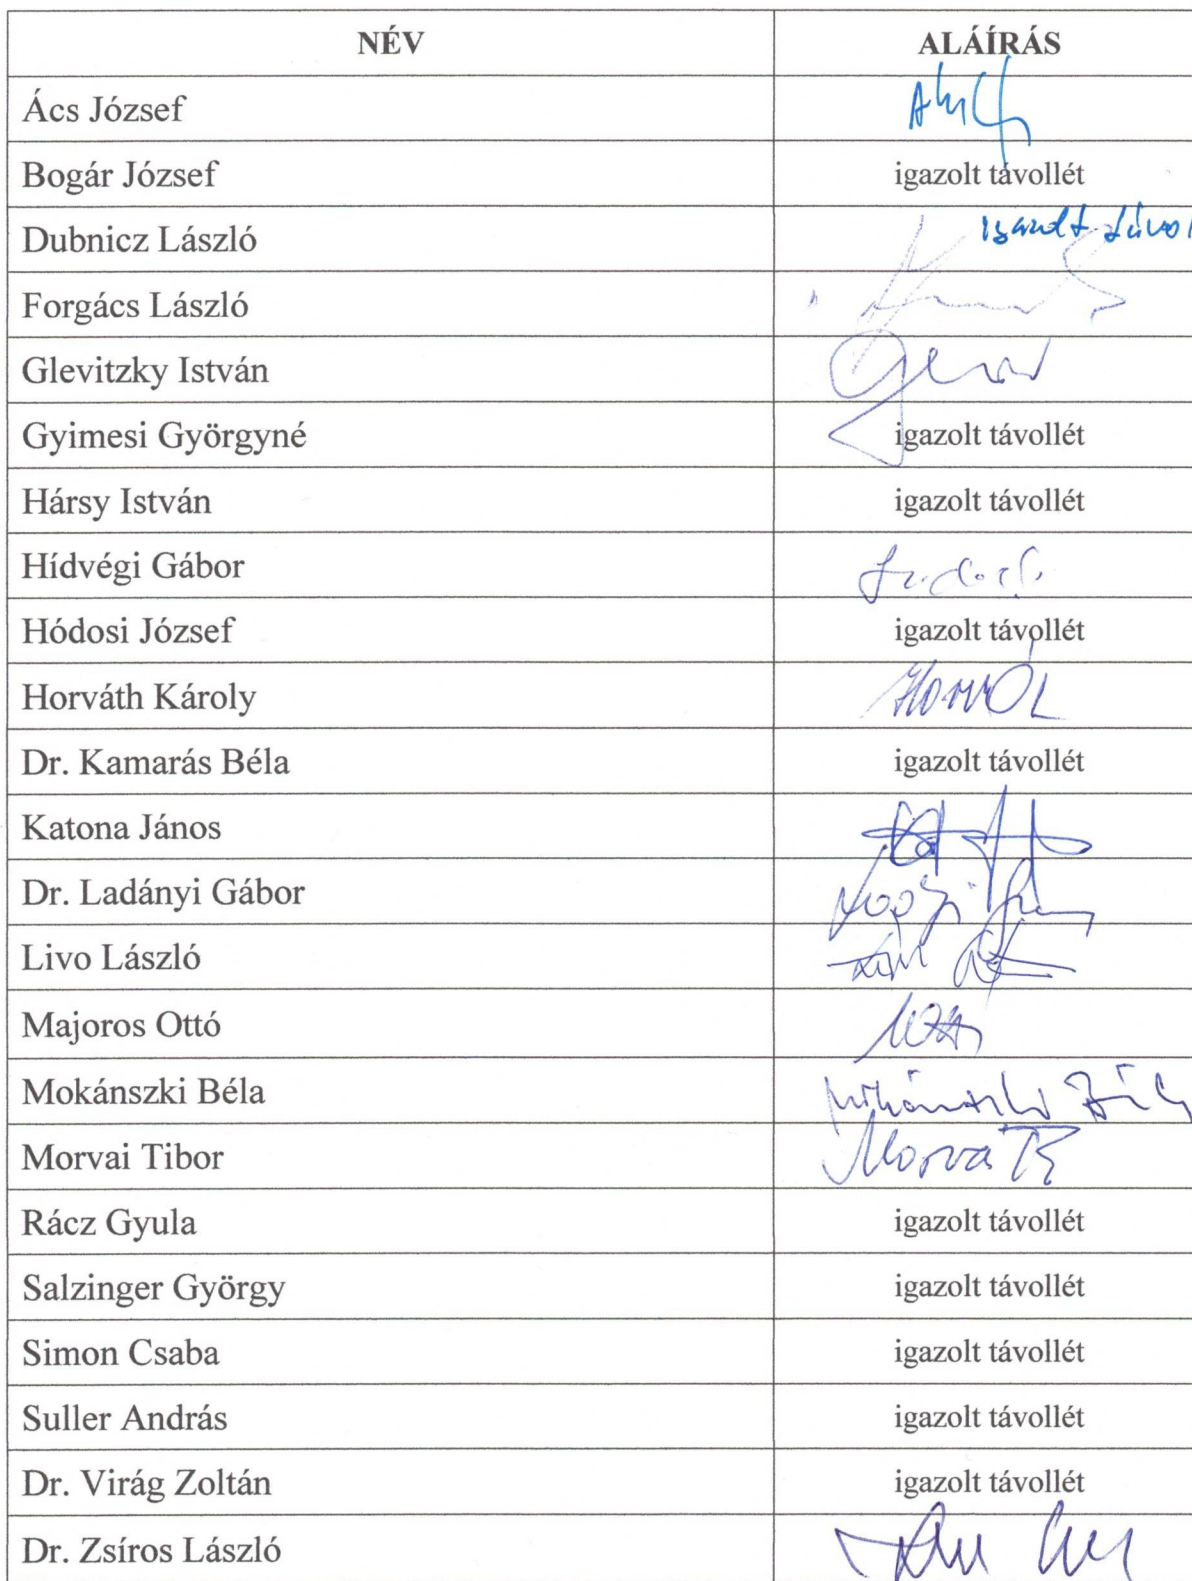 NÉV ALÁÍRÁS
Ács József
Bogár József igazolt távollét
Dubnicz László igazolt távol
Forgács László
Glevitzky István
Gyimesi Györgyné igazolt távollét
Hársy István igazolt távollét
Hídvégi Gábor
Hódosi József igazolt távollét
Horváth Károly Horváth
Dr. Kamarás Béla igazolt távollét
Katona János
Dr. Ladányi Gábor
Livo László
Majoros Ottó
Mokánszki Béla Mokánszki Béla
Morvai Tibor Morvai T
Rácz Gyula igazolt távollét
Salzinger György igazolt távollét
Simon Csaba igazolt távollét
Suller András igazolt távollét
Dr. Virág Zoltán igazolt távollét
Dr. Zsíros László